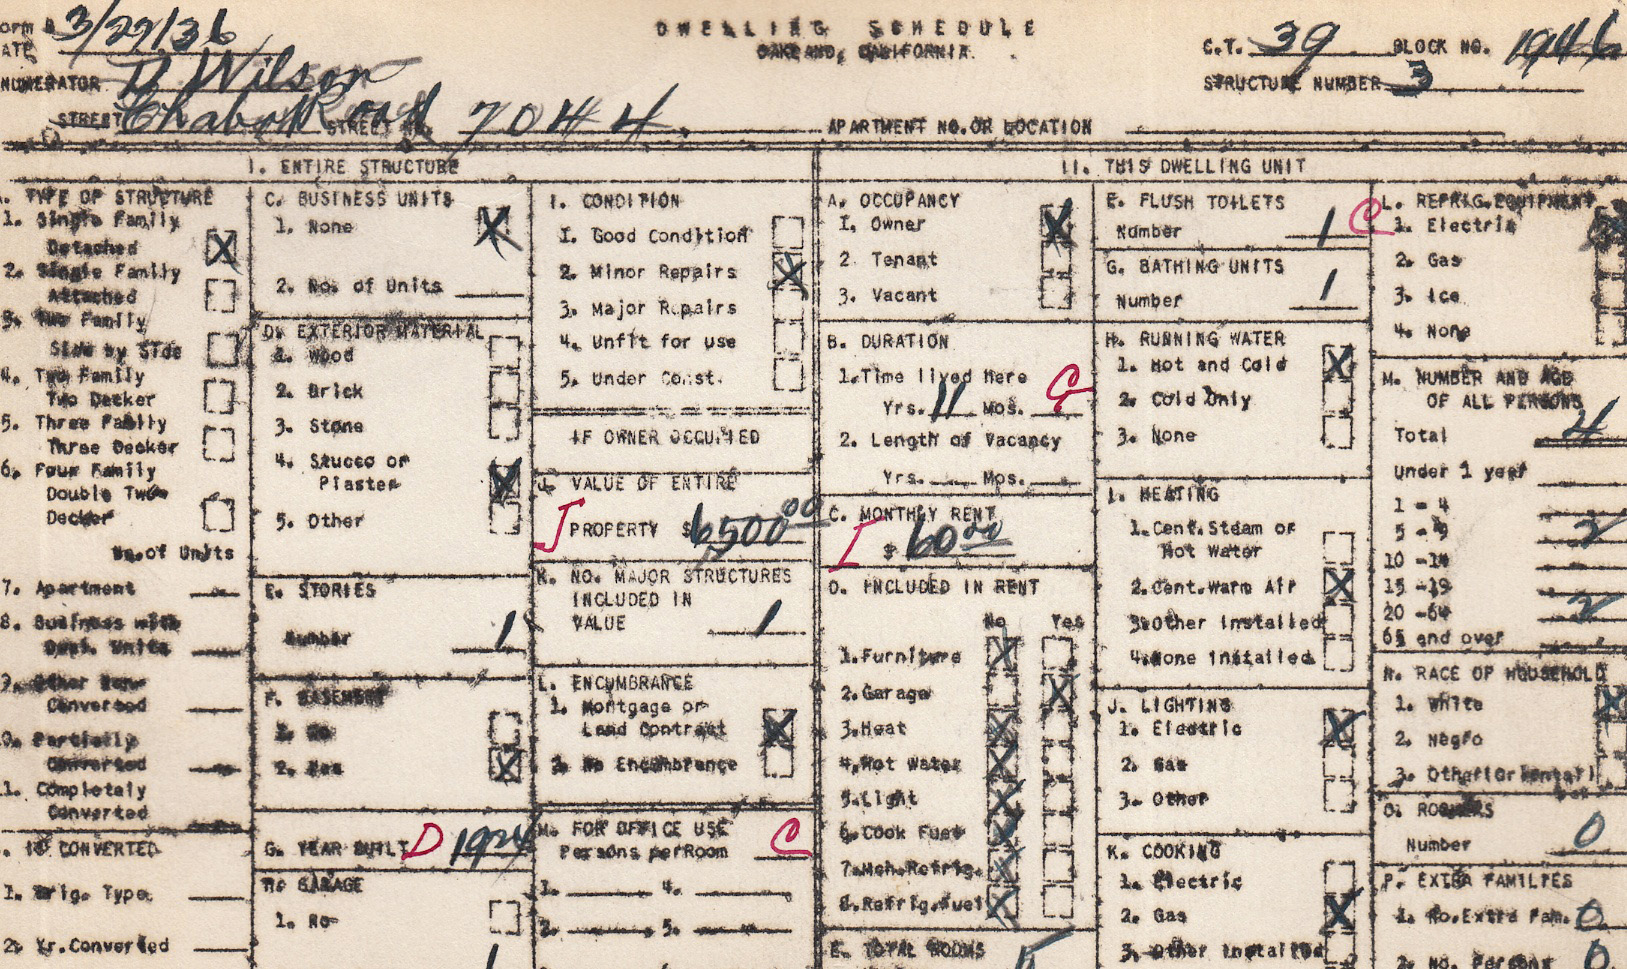 DWELLING SCHEDULE
OAKLAND, CALIFORNIA.
orm
ATE 3/27/36
NUMERATOR D Wilson
STREET Chabot Road STREET NO. 7044.
C.T. 39 BLOCK NO. 1946
STRUCTURE NUMBER 3
APARTMENT NO. OR LOCATION
I. ENTIRE STRUCTURE
. TYPE OF STRUCTURE
1. Single Family
Detached X
2. Single Family
Attached
3. Two Family
Side by Side
4. Two Family
Two Decker
5. Three Family
Three Decker
6. Four Family
Double Two
Decker
No. of Units
7. Apartment
8. Business with
Dwel. Units
9. Other Non-
Converted
0. Partially
Converted
1. Completely
Converted
. IF CONVERTED
1. Orig. Type
2. Yr. Converted
C. BUSINESS UNITS
1. None X
2. No. of Units
D. EXTERIOR MATERIAL
1. Wood
2. Brick
3. Stone
4. Stucco or
Plaster X
5. Other
E. STORIES
Number 1
F. BASEMENT
1. No
2. Yes X
G. YEAR BUILT D 1924
H. GARAGE
1. No
I. CONDITION
1. Good Condition
2. Minor Repairs X
3. Major Repairs
4. Unfit for use
5. Under Const.
IF OWNER OCCUPIED
J. VALUE OF ENTIRE
PROPERTY $ 6500.00
K. NO. MAJOR STRUCTURES
INCLUDED IN
VALUE 1
L. ENCUMBRANCE
1. Mortgage or
Land Contract X
2. No Encumbrance
M. FOR OFFICE USE
Persons per Room C
1. 4.
2. 5.
II. THIS DWELLING UNIT
A. OCCUPANCY
I. Owner X
2 Tenant
3. Vacant
B. DURATION
1. Time lived Here
Yrs. 11 Mos.
2. Length of Vacancy
Yrs. Mos.
C. MONTHLY RENT
$ 60.00
D. INCLUDED IN RENT
No Yes
1. Furniture X
2. Garage X
3. Heat X
4. Hot Water X
5. Light X
6. Cook Fuel X
7. Meh. Refrig. X
8. Refrig. Fuel X
E. TOTAL ROOMS 5
F. FLUSH TOILETS
Number 1
G. BATHING UNITS
Number 1
H. RUNNING WATER
1. Hot and Cold X
2. Cold Only
3. None
I. HEATING
1. Cent. Steam or
Hot Water
2. Cent. Warm Air X
3. Other Installed
4. None Installed
J. LIGHTING
1. Electric X
2. Gas
3. Other
K. COOKING
1. Electric
2. Gas X
3. Other Installed
L. REFRIG. EQUIPMENT
1. Electric X
2. Gas
3. Ice
4. None
M. NUMBER AND AGE
OF ALL PERSONS
Total 4
Under 1 year
1 - 4
5 - 9 2
10 - 14
15 - 19
20 - 64 2
65 and over
N. RACE OF HOUSEHOLD
1. White X
2. Negro
3. Other (oriental)
O. ROOMERS
Number 0
P. EXTRA FAMILIES
1. No. Extra Fam. 0
2. No. Persons 0